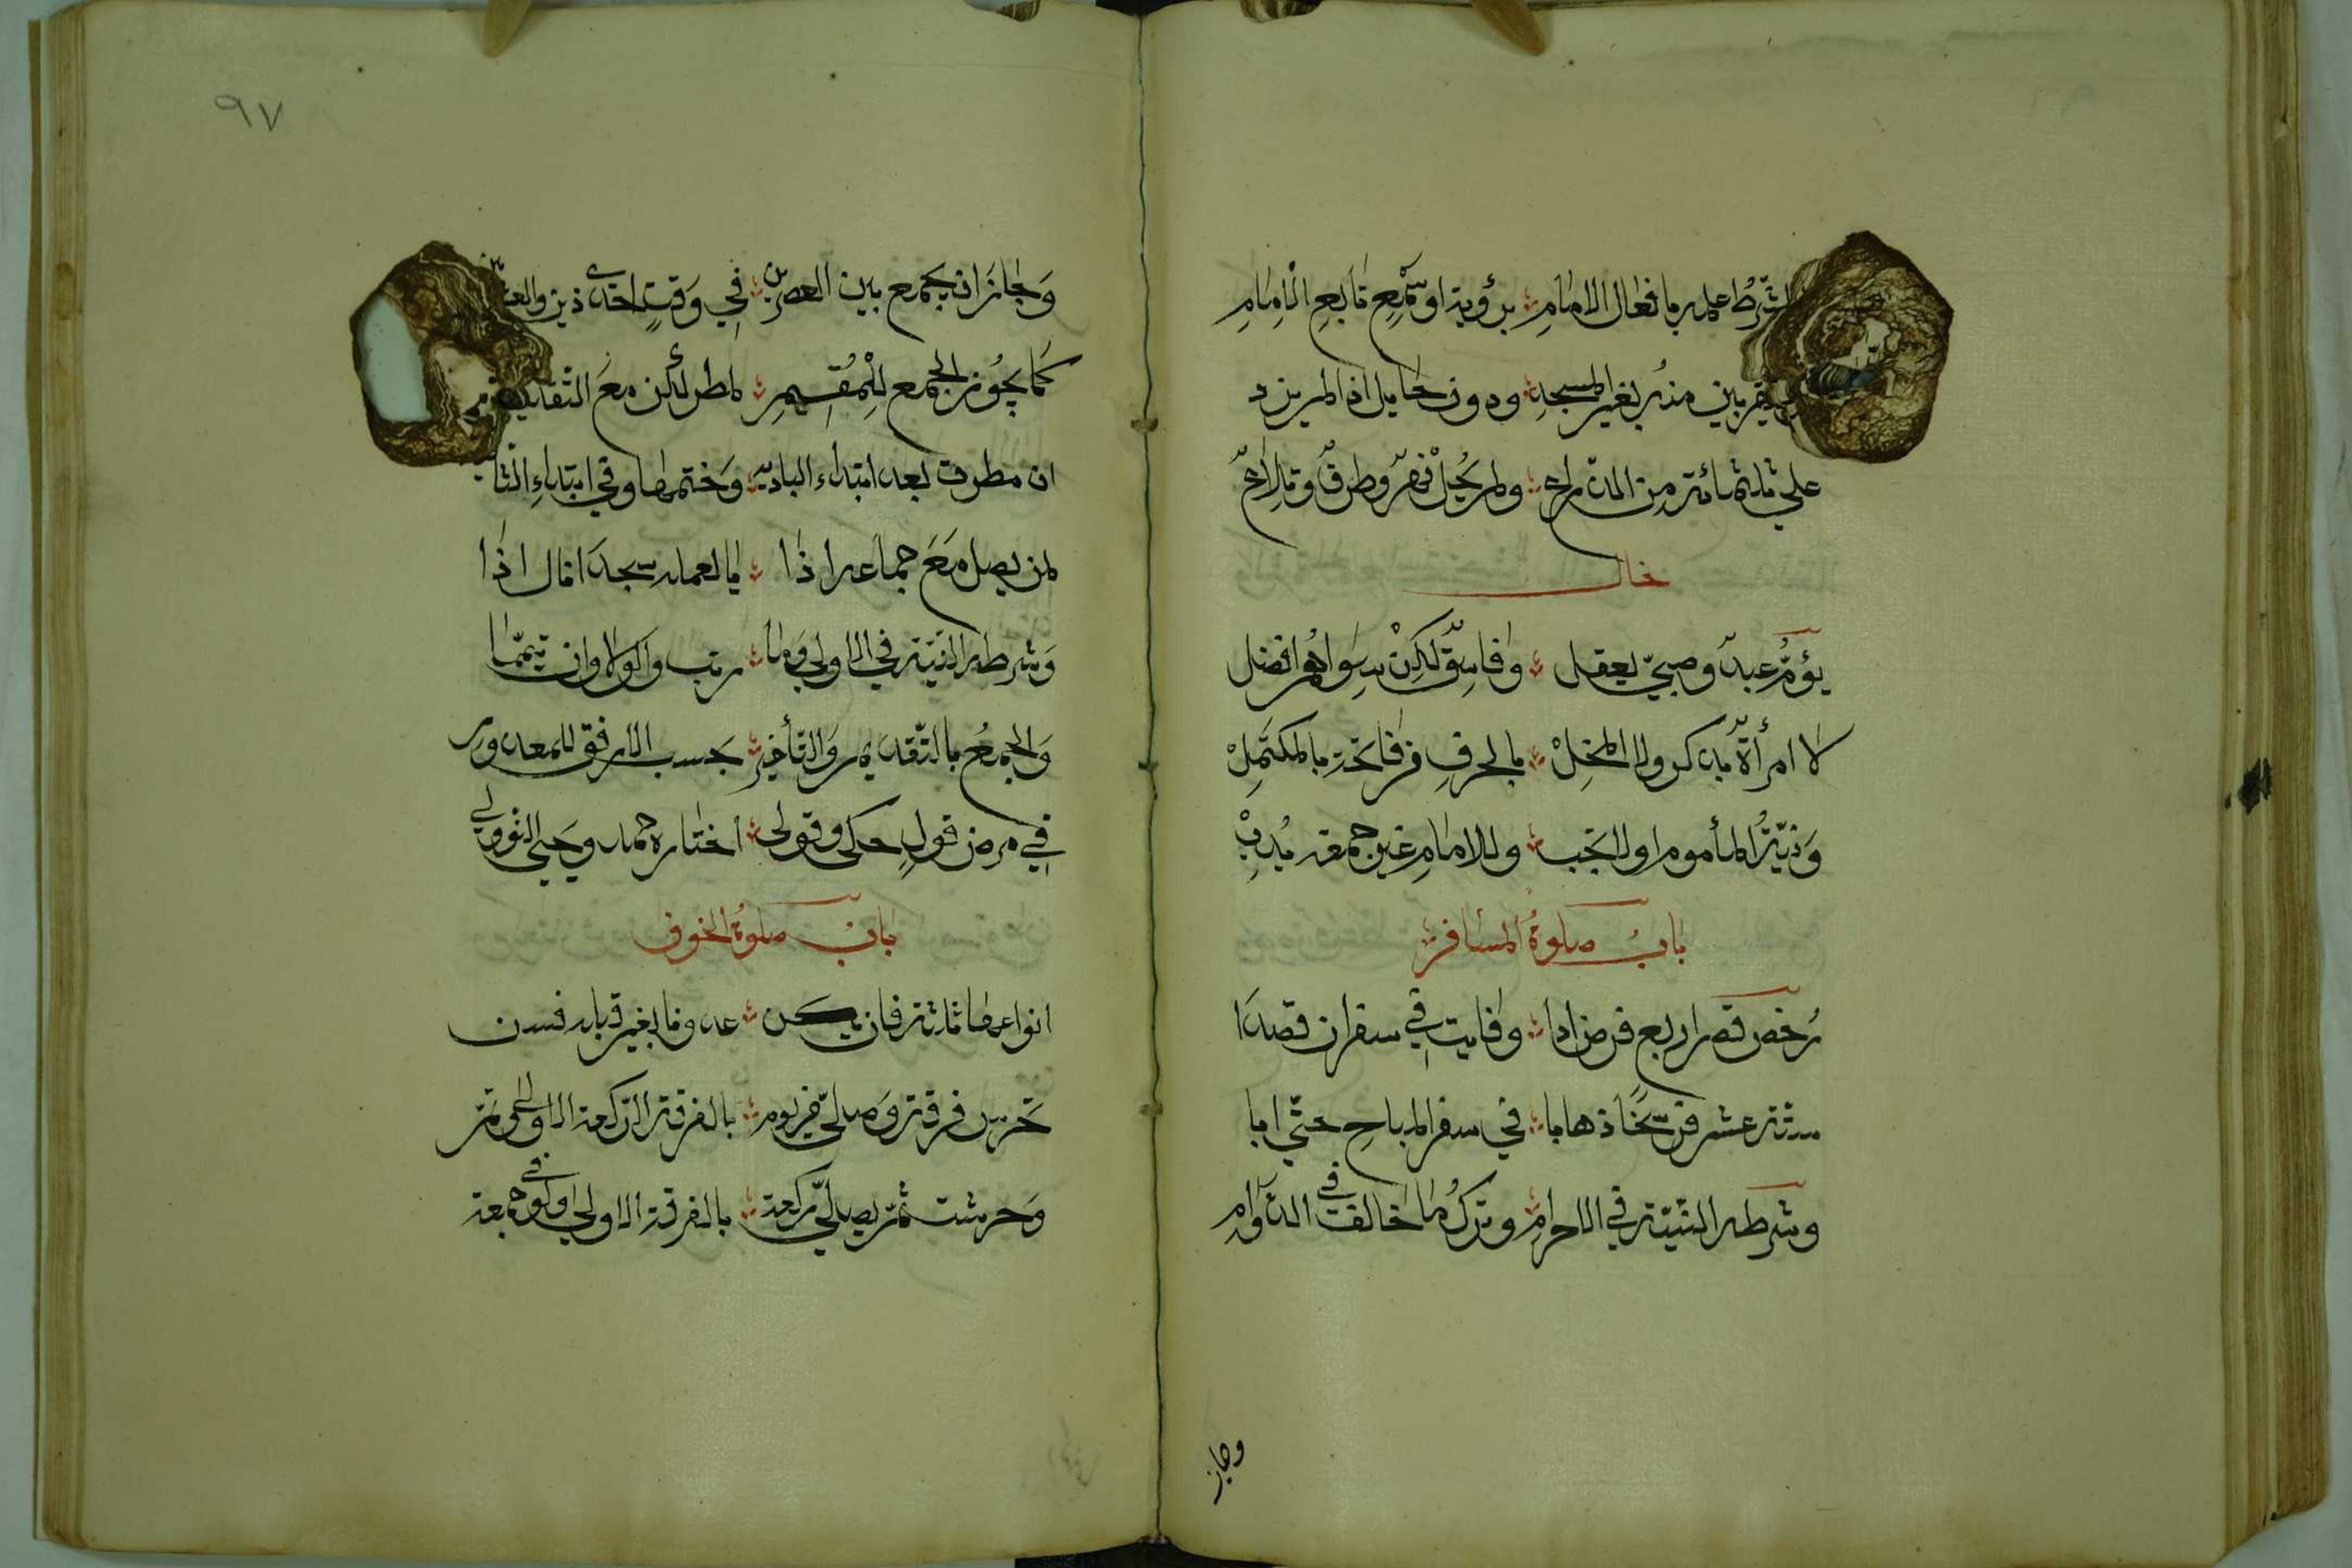 الشرط علمه بافعال الامام برؤية او سمع تابع الامام
يقربن منه بغير المسجد ودون حايل اذا لم يزد
على ثلثمائة من الذراع ولم يحل نهر وطرق وتلاع
يؤم عبد وصبي يعقل وفاسق لكن سواهم افضل
لا امرأة بذكر ولا المخل بالحرف من فاتحة بالمكتمل
وَنيّةُ المأموم اولا تجب وللامام غير جمعة نُدِبْ
بابُ صلوةُ المسافر
رُخّص قصر اربع فرض ادا وفايت في سفر ان قصدَا
ستة عشر فرسخًا ذهابا في سفر المباح حتّي ابا
وشرطه النّيّة في الاحرام وترك ما خالف في الدّوام
وجاز
٩٧
وَجازَ ان يجمع بين العصرين في وَقتٍ احدى ذين والعشائين
كما يجُوز الجمع للْمُقِيمِ لمطر لكن معَ التقديم
ان مطرت بعد ابتداء الباديه وَختمها وفي ابتداءِ الثانيه
لمن يصل مَعَ جماعه اذا
وَشرطه النّيّة في الاولي وَما رتب والولا وان تيمّما
وَالجمعُ بالتّقديم وَالتأخير بحسب الارفق للمعدور
في مرض قولٍ حكي وقوي اختاره حمد ويحيي النّووي
بابُ صلوةُ الخوف
انواعها ثلثة فان يكن عدونا بغير قبله فسن
تحرس فرقة وَصلّي من يوم بالفرقة الرّكعة الاولى وتتم
وَحرست ثمّ يصلّي ركعة بالفرقة الاولي ولو في جمعة